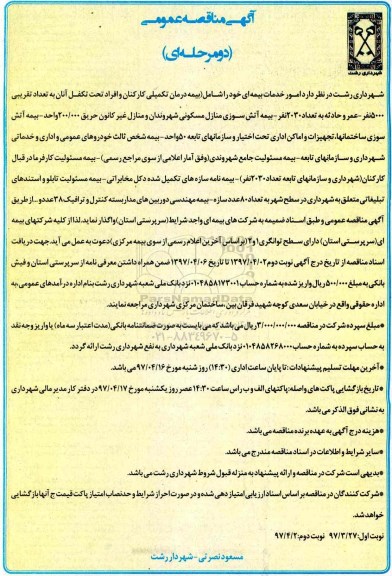 آگهی مناقصه عمومی
(دو مرحله ای)
شهرداری رشت
شهرداری رشت در نظر دارد امور خدمات بیمه ای خود را شامل (بیمه درمان تکمیلی کارکنان و افراد تحت تکفل آنان به تعداد تقریبی
۵۰۰۰نفر -عمر و حادثه به تعداد ۲۰۳۰نفر- بیمه آتش سوزی منازل مسکونی شهروندان و منازل غیر کانون حریق ۲۰۰/۰۰۰واحد-بیمه آتش
سوزی ساختمانها، تجهیزات و اماکن اداری تحت اختیار و سازمانهای تابعه ۵۰واحد-بیمه شخص ثالث خودروهای عمومی و اداری و خدماتی
شهرداری و سازمانهای تابعه -بیمه مسئولیت جامع شهروندی (وفق آمار اعلامی از سوی مراجع رسمی) -بیمه مسئولیت کارفرما در قبال
کارکنان (شهرداری و سازمانهای تابعه تعداد ۲۰۳۰نفر) -بیمه نامه سازه های تکمیل شده دکل مخابراتی -بیمه مسئولیت تابلو و استندهای
تبلیغاتی متعلق به شهرداری در سطح شهر به تعداد ۸۰عدد سازه -بیمه مهندسی دوربین های مداربسته کنترل و ترافیک ۲۸عدد و... از طریق
آگهی مناقصه عمومی و طبق اسناد ضمیمه به شرکت های بیمه ای واجد شرایط (سرپرستی استان) واگذار نماید. لذا از کلیه شرکتهای بیمه
ای (سرپرستی استان) دارای سطح توانگری ۱و۲(بر اساس آخرین اعلام رسمی از سوی بیمه مرکزی) دعوت به عمل می آید. جهت دریافت
اسناد مناقصه از تاریخ درج آگهی نوبت دوم ۱۳۹۷/۰۴/۰۲ تا تاریخ ۱۳۹۷/۰۴/۰۶ ضمن همراه داشتن معرفی نامه از سرپرستی استان و فیش
بانکی به مبلغ ۵۰۰/۰۰۰ریال واریز شده به شماره حساب ۰۱۰۴۸۵۸۱۷۳۰۰۱ نزد بانک ملی شعبه شهرداری رشت بنام اداره درآمدهای عمومی، به
اداره حقوقی واقع در خیابان سعدی کوچه شهید فرقان بین، ساختمان مرکزی شهرداری مراجعه نمایند.
*مبلغ سپرده شرکت در مناقصه ۳/۰۰۰/۰۰۰/۰۰۰ ریال می باشد که می بایست به صورت ضمانتنامه بانکی (مدت اعتبار سه ماه) یا واریز وجه نقد
به حساب سپرده به شماره حساب ۰۱۰۴۸۵۸۲۶۸۰۰۰ نزد بانک ملی شعبه شهرداری به نفع شهرداری رشت ارائه گردد.
*آخرین مهلت تسلیم پیشنهادات: تا پایان ساعت اداری (۱۴:۳۰) روز شنبه مورخ ۹۷/۰۴/۱۶ می باشد.
*تاریخ بازگشایی پاکت های واصله: پاکتهای الف و ب راس ساعت ۱۴:۳۰ عصر روز یکشنبه مورخ ۹۷/۰۴/۱۷ در دفتر کار مدیر مالی شهرداری
به نشانی فوق الذکر می باشد.
*هزینه درج آگهی به عهده برنده مناقصه می باشد.
*سایر شرایط و اطلاعات در اسناد مناقصه مندرج می باشد.
*بدیهی است شرکت در مناقصه و ارائه پیشنهاد به منزله قبول شروط شهرداری رشت می باشد.
*شرکت کنندگان در مناقصه بر اساس اسناد ارزیابی امتیاز دهی شده و در صورت احراز شرایط و حد نصاب امتیاز پاکت قیمت ج آنها بازگشایی
خواهد شد.
نوبت اول: ۹۷/۳/۲۷ نوبت دوم: ۹۷/۴/۲
مسعود نصرتی - شهردار رشت